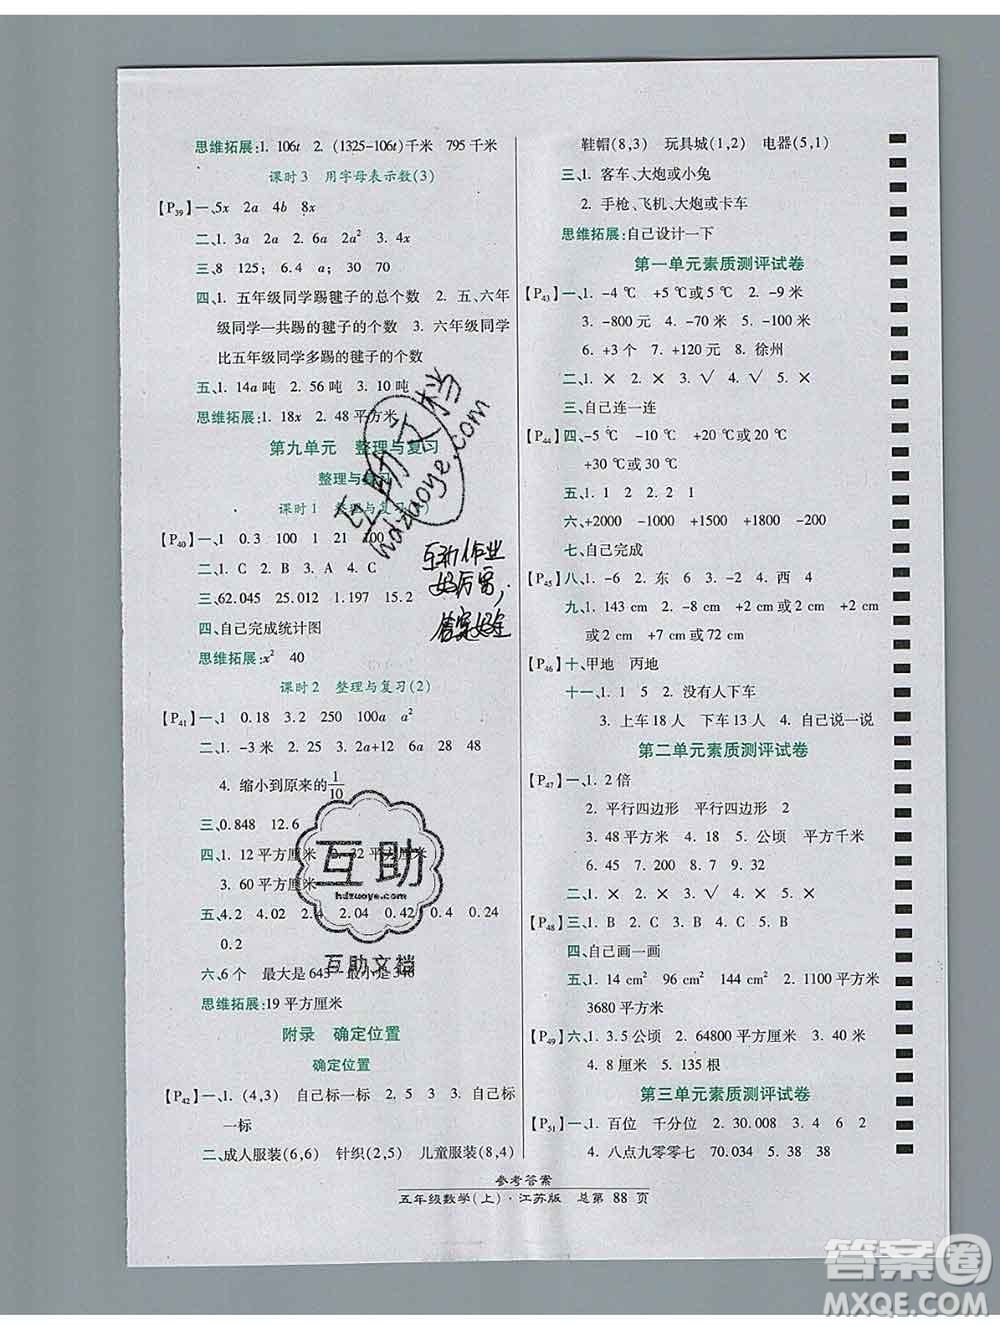 思维拓展:1. 106t  2. (1325-106t)千米  795 千米
课时 3  用字母表示数(3)
【P39】一、5x  2a  4b  8x
二、1. 3a  2a  2. x  2a²  3. 4x
三、8  125; 6.4  a; 30  70
四、1. 五年级同学踢毽子的总个数  2. 五、六年
级同学一共踢的毽子的个数  3. 六年级同学
比五年级同学多踢的毽子的个数
五、1. 14a 吨  2. 56 吨  3. 10 吨
思维拓展:1. 18x  2. 48 平方米
第九单元  整理与复习
整理与复习
课时 1  整理与复习(1)
【P40】一、1  0.3  100  1  21  100
二、1. C  2. B  3. A  4. C
三、62.045  25.012  1.197  15.2
四、自己完成统计图
思维拓展:x²  40
课时 2  整理与复习(2)
【P41】一、1  0.18  3.2  250  100a  a²
二、1. -3 米  2. 100  3. 2a+12  6a  28  48
4. 缩小到原来的1/10
三、0.848  12.6
四、1. 12 平方厘米  2. 32 平方厘米
3. 60 平方厘米
五、4.2  4.02  2.4  2.04  0.42  0.4  0.24
0.2
六、6 个  最大是 643  最小是 346
思维拓展:19 平方厘米
附录  确定位置
确定位置
【P42】一、1. (4,3)  自己标一标  2. 5  3  3. 自己标
一标
二、成人服装(6,6)  针织(2,5)  儿童服装(8,4)
鞋帽(8,3)  玩具城(1,2)  电器(5,1)
三、1. 客车、大炮或小兔
2. 手枪、飞机、大炮或卡车
思维拓展:自己设计一下
第一单元素质测评试卷
【P43】一、1. -4 ℃  +5 ℃或5 ℃  2. -9 米
3. -800 元  4. -70 米  5. -100 米
6. +3 个  7. +120 元  8. 徐州
二、1. ×  2. ×  3. √  4. √  5. ×
三、自己连一连
【P44】四、-5 ℃  -10 ℃  +20 ℃或20 ℃
+30 ℃或30 ℃
五、1. C  2. B  3. A  4. C  5. B
六、+2000  -1000  -1500  +2500
七、自己完成
【P45】八、1. -6  2. 东  6  3. -2  4. 西  4
九、1. 143 cm  2. -8 cm  +2 cm  +2 cm
或2 cm  +7 cm  +72 cm或72 cm
【P46】十、甲地  丙地
十一、1. 1  5  2. 没有人下车
3. 上车18 人  下车13 人  4. 自己说一说
第二单元素质测评试卷
【P47】一、1. 2 倍
2. 平行四边形  平行四边形  2
3. 48 平方米  4. 18  5. 公顷  平方千米
6. 45  7. 200  8. 7  9. 32
二、1. ×  2. ×  3. √  4. ×  5. ×
【P48】三、1. B  2. C  3. B  4. C  5. B
四、自己画一画
五、1. 14 cm²  96 cm²  144 cm²  2. 1100 平方米
3680 平方米
【P49】六、1. 3.5 公顷  2. 64800 平方厘米  3. 40 米
4. 8 厘米  5. 135 根
第三单元素质测评试卷
【P51】一、1. 百位  千分位  2. 30.008  3. 4  6  2
4. 八点九零零七  70.034  5. 38  38
参考答案
五年级数学(上)·江苏版  总第 88 页
互助文档
hdzuoye.com
互动作业
好厉害,
答案好全
互助
hdzuoye.com
互助文档
答案圈
MXQE.COM